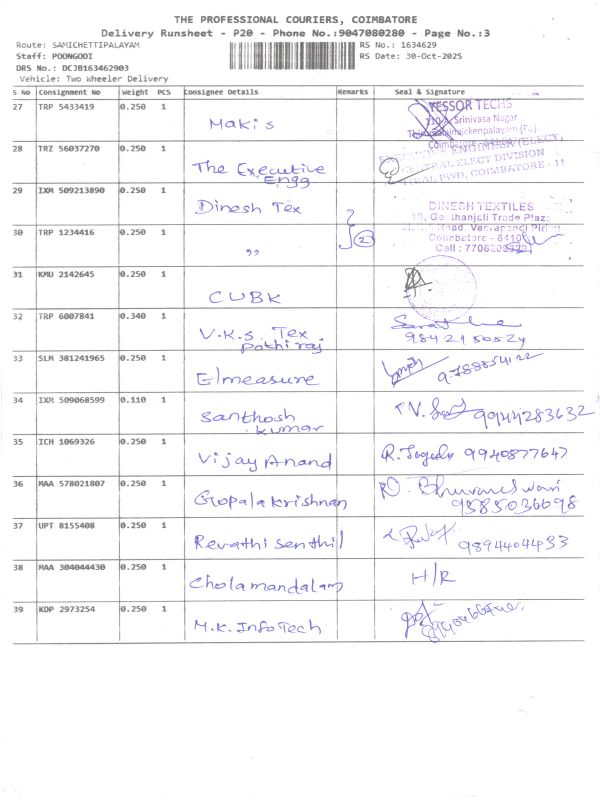 THE PROFESSIONAL COURIERS, COIMBATORE
Delivery Runsheet - P20 - Phone No.:9047080280 - Page No.:3
Route: SAMICHETTIPALAYAM RS No.: 1634629
Staff: POONGODI RS Date: 30-Oct-2025
DRS No.: DCJB163462903
Vehicle: Two Wheeler Delivery
S No Consignment No Weight PCS Consignee Details Remarks Seal & Signature
27 TRP 5433419 0.250 1 Maki s
TESSOR TECHS
Srinivasa Nagar
28 TRZ 56037270 0.250 1 The Executive Engg
ELECT DIVISION
PWD, COIMBATORE - 11
29 IXM 509213890 0.250 1 Dinesh Tex
DINESH TEXTILES
Geethanjali Trade Plaza
30 TRP 1234416 0.250 1 ,, 2
Road,
Coimbatore - 6410
31 KMU 2142645 0.250 1 CUBK
32 TRP 6007841 0.340 1 V.K.S. Tex
Pothiraj
9842150524
33 SLM 381241965 0.250 1 Elmeasure
34 IXM 509068599 0.110 1 Santhosh
kumar
9944283632
35 ICH 1069326 0.250 1 Vijay Anand
9940877647
36 MAA 578021807 0.250 1 Gopalakrishnan
Bhuvaneswari
9585036698
37 UPT 8155408 0.250 1 Revathi Senthil
9894404433
38 MAA 304044430 0.250 1 Cholamandalam H/R
39 KDP 2973254 0.250 1 M.K. InfoTech